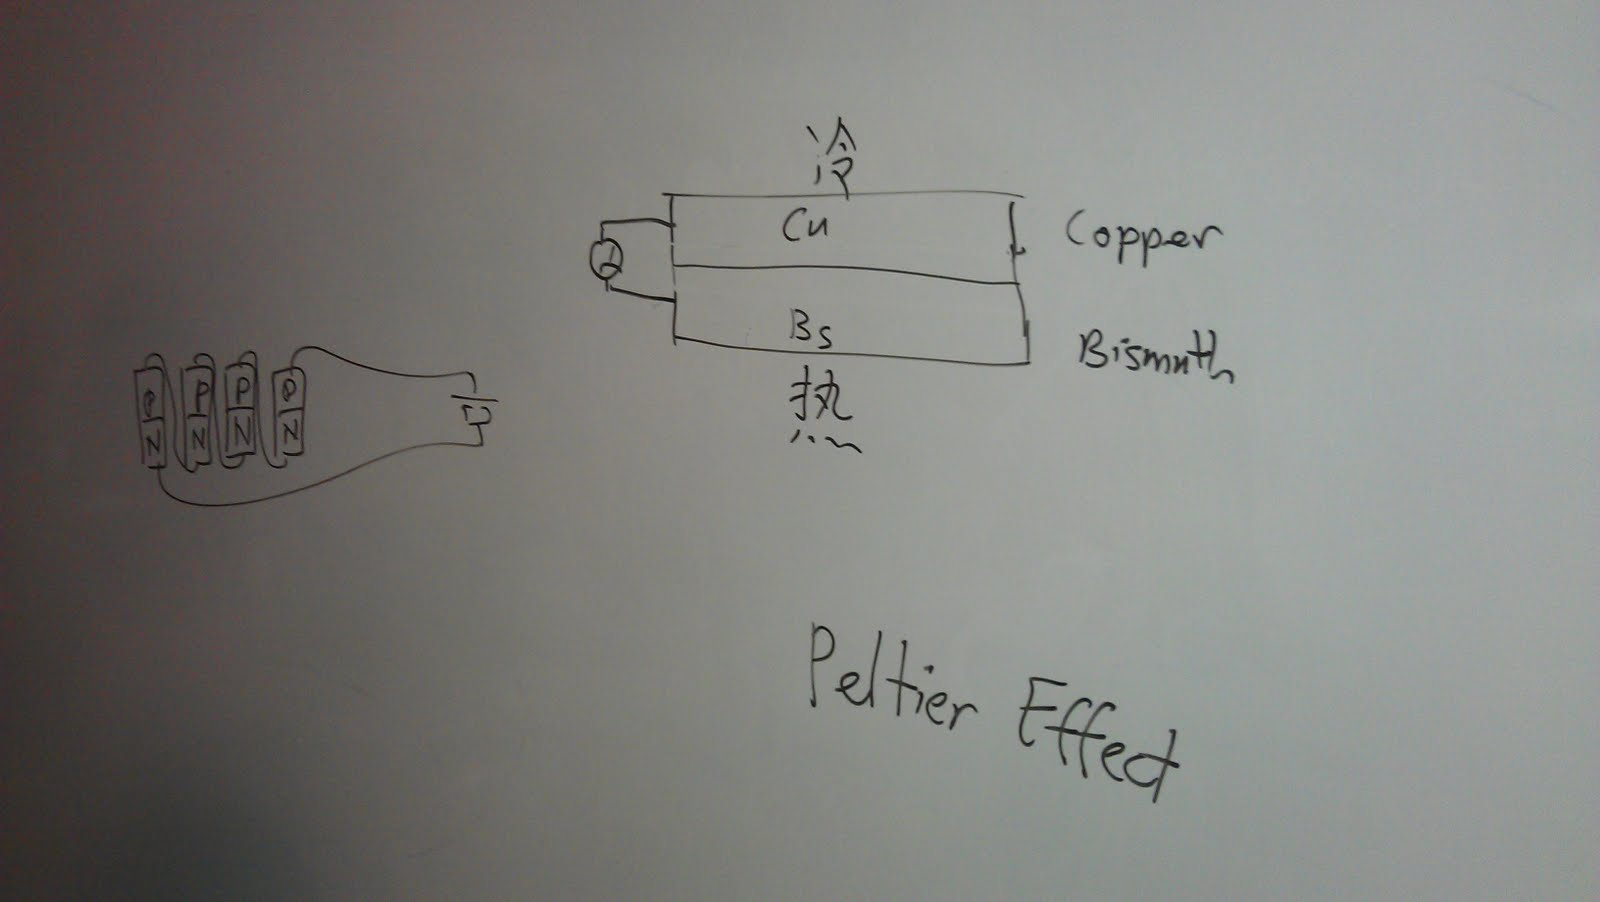 冷
Cu
Copper
Bs
Bismuth
热
P P P P
N N N N
Peltier Effect